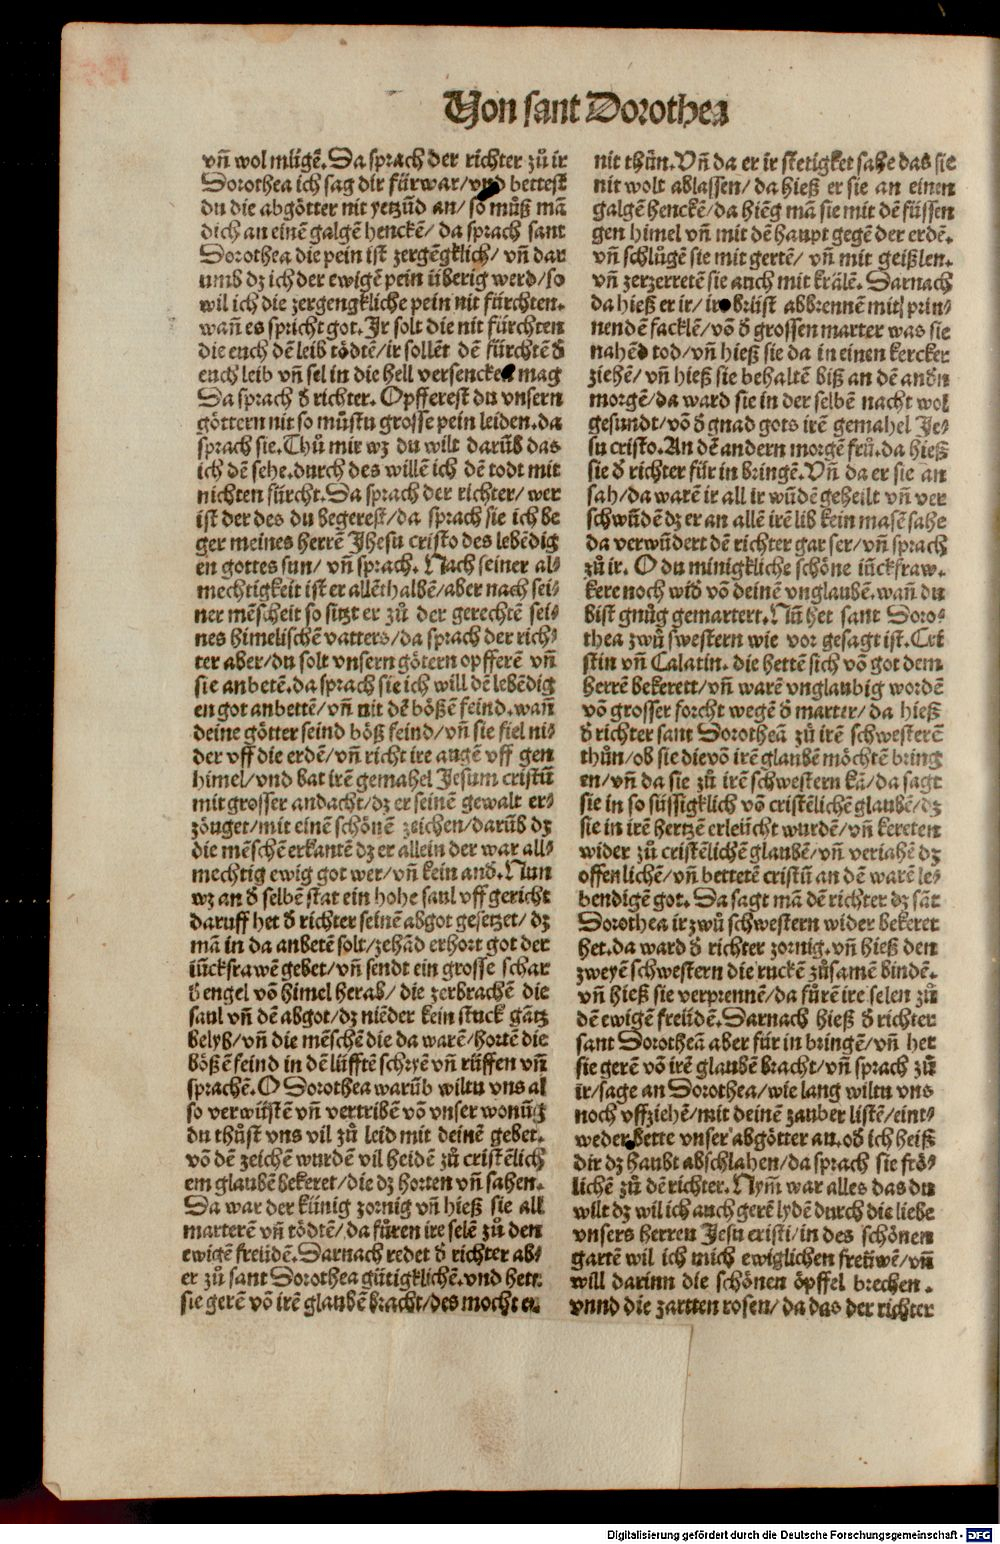 Von sant Dorothea
vn̄ wol mügē. Da sprach der richter zů ir
Dorothea ich sag dir fürwar/vnd bettest
du die abgötter nit yetzūd an/so můß mā
dich an einē galgē henckē/da sprach sant
Dorothea die pein ist zergēgklich/vn̄ dar
umb dz ich der ewigē pein überig werd/so
wil ich die zergengkliche pein nit fürchten.
wan̄ es spricht got. Ir solt die nit fürchten
die euch dē leib tödtē/ir sollēt dē fürchtē đ
euch leib vn̄ sel in die hell versencken mag
Da sprach đ richter. Opfferest du vnsern
göttern nit so můstu grosse pein leiden. da
sprach sie. Thů mir wz du wilt darūb das
ich dē sehe. durch des willē ich dē todt mit
nichten fürcht. Da sprach der richter/wer
ist der des du begerest/da sprach sie ich be
ger meines herrē Jhesu cristo des lebēdig
en gottes sun/vn̄ sprach. Nach seiner al⸗
mechtigkeit ist er allēthalbē/aber nach sei⸗
ner mēscheit so sitzt er zů der gerechtē sei⸗
nes himelischē vatters/da sprach der rich⸗
ter aber/du solt vnsern götern opfferē vn̄
sie anbetē. da sprach sie ich will dē lebēdig
en got anbettē/vn̄ nit dē bößē feind. wan̄
deine götter seind böß feind/vn̄ sie fiel ni⸗
der vff die erdē/vn̄ richt ire augē vff gen
himel/vnd bat irē gemahel Jesum cristū
mit grosser andacht/dz er seinē gewalt er⸗
zöuget/mit einē schönē zeichen/darūb dz
die mēschē erkantē dz er allein der war all⸗
mechtig ewig got wer/vn̄ kein anđ. Nun
wz an đ selbē stat ein hohe saul vff gericht
daruff het đ richter seinē abgot gesetzet/dz
mā in da anbetē solt/zehād erhort got der
iūckfrawē gebet/vn̄ sendt ein grosse schar
đ engel vō himel herab/die zerbrachē die
saul vn̄ dē abgot/dz niēder kein stuck gātz
belyb/vn̄ die mēschē die da warē/hortē die
bößē feind in dē lüfftē schryē vn̄ rüffen vn̄
sprachē. O Dorothea warūb wiltu vns al
so verwüstē vn̄ vertribē vō vnser wonūg
du thůst vns vil zů leid mit deinē gebet.
vō dē zeichē wurdē vil heidē zů cristēlich
em glaubē bekeret/die dz horten vn̄ sahen.
Da war der künig zornig vn̄ hieß sie all
marterē vn̄ tödtē/da fůren ire selē zů den
ewigē freüdē. Darnach redet đ richter ab⸗
er zů sant Dorothea gütigklichē. vnd hett
sie gerē vō irē glaubē bracht/des mocht er
nit thůn. Vn̄ da er ir stetigket sahe das sie
nit wolt ablassen/da hieß er sie an einen
galgē henckē/da hiēg mā sie mit dē füssen
gen himel vn̄ mit dē haupt gegē der erdē.
vn̄ schlůgē sie mit gertē/vn̄ mit geißlen.
vn̄ zerzerretē sie auch mit krälē. Darnach
da hieß er ir/ir brüst abbrennē mit prin⸗
nendē facklē/vō đ grossen marter was sie
nahēd tod/vn̄ hieß sie da in einen kercker
ziehē/vn̄ hieß sie behaltē biß an dē anđn
morgē/da ward sie in der selbē nacht wol
gesundt/vō đ gnad gots irē gemahel Je⸗
su cristo. An dē andern morgē frů. da hieß
sie đ richter für in bringē. Vn̄ da er sie an
sah/da warē ir all ir wūdē geheilt vn̄ ver
schwūdē dz er an allē irē lib kein masē sahe
da verwūdert dē richter gar ser/vn̄ sprach
zů ir. O du minigkliche schöne iūckfraw.
kere noch wiđ vō deinē vnglaubē. wan̄ du
bist gnůg gemartert. Nū het sant Doro⸗
thea zwů swestern wie vor gesagt ist. Cri
stin vn̄ Calatin. die hettē sich vō got dem
herrē bekerett/vn̄ warē vnglaubig wordē
vō grosser forcht wegē đ marter/da hieß
đ richter sant Dorotheā zů irē schwesterē
thůn/ob sie die vō irē glaubē möchtē bring
en/vn̄ da sie zů irē schwestern kā/da sagt
sie in so süssigklich vō cristēlichē glaubē/dz
sie in irē hertzē erleücht wurdē/vn̄ kereten
wider zů cristēlichē glaubē/vn̄ veriahē dz
offenlichē/vn̄ bettetē cristū an dē warē le⸗
bendigē got. Da sagt mā dē richter dz sāt
Dorothea ir zwů schwestern wider bekeret
het. da ward đ richter zornig. vn̄ hieß den
zweyē schwestern die ruckē zůsamē bindē.
vn̄ hieß sie verprennē/da fůrē ire selen zů
dē ewigē freüdē. Darnach hieß đ richter
sant Dorotheā aber für in bringē/vn̄ het
sie gerē vō irē glaubē bracht/vn̄ sprach zů
ir/sage an Dorothea/wie lang wiltu vns
noch vffziehē/mit deinē zauber listē/eint⸗
weder bette vnser abgötter an. ob ich heiß
dir dz haubt abschlahen/da sprach sie frö⸗
lichē zů dē richter. Nym̄ war alles das du
wilt dz wil ich auch gerē lydē durch die liebe
vnsers herren Jesu cristi/in des schönen
gartē wil ich mich ewiglichen freüwē/vn̄
will darinn die schönen öpffel brechen.
vnnd die zartten rosen/da das der richter
Digitalisierung gefördert durch die Deutsche Forschungsgemeinschaft - DFG